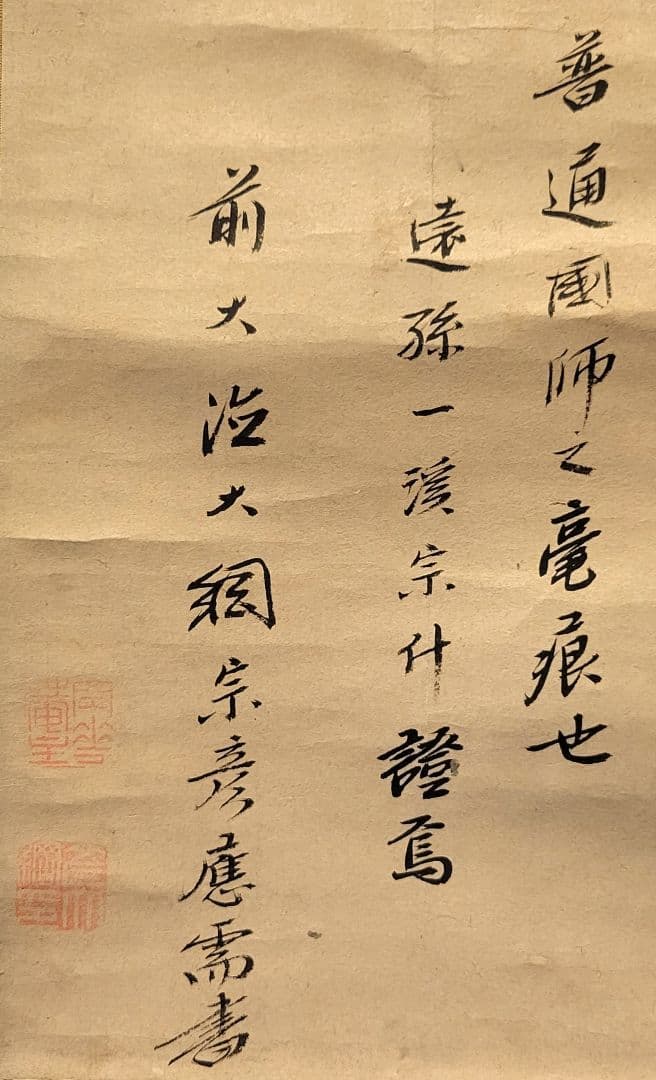 普通國師之毫痕也
遠孫一溪宗什證焉
前大德大綱宗彦應需書